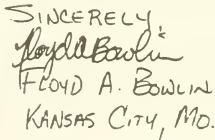 SINCERELY,
Floyd A Bowlin
FLOYD A. BOWLIN
KANSAS CITY, MO.